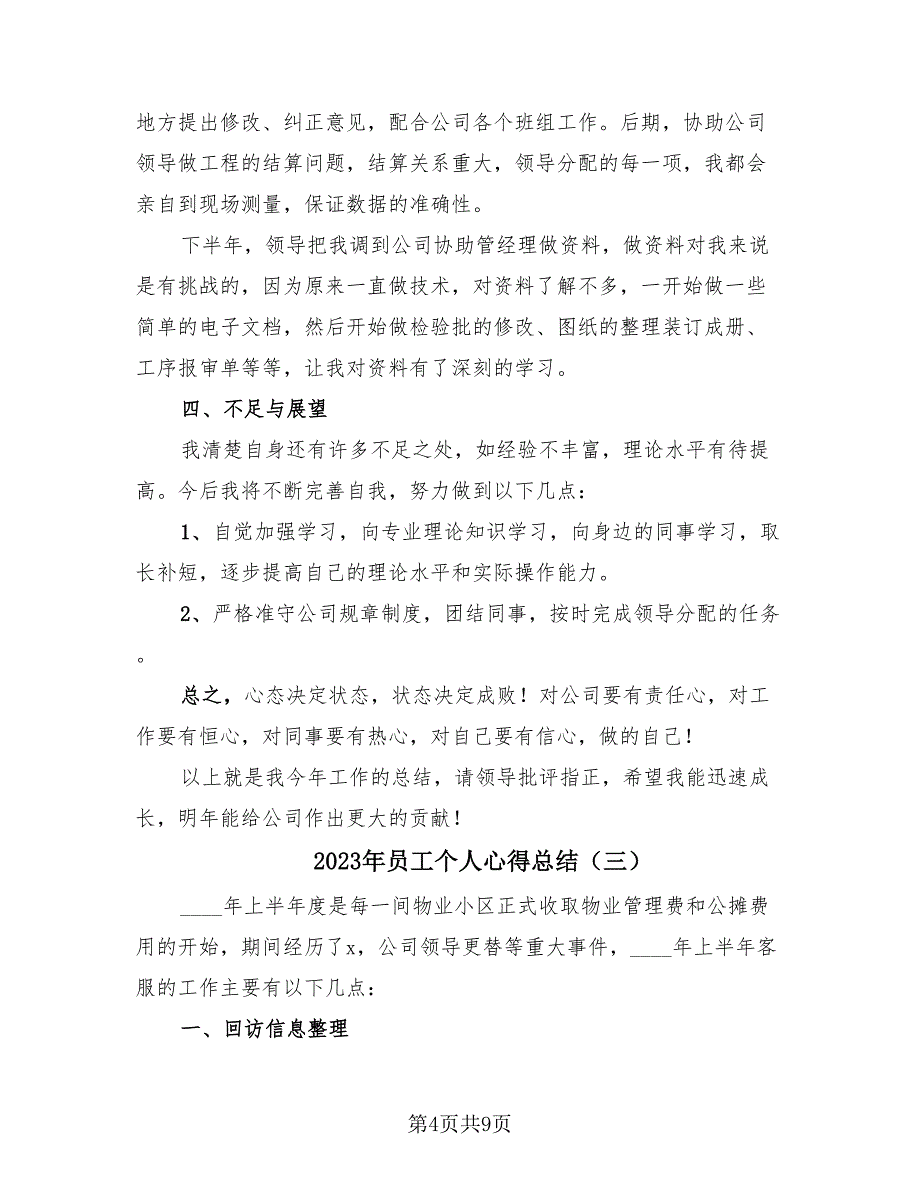 地方提出修改、纠正意见，配合公司各个班组工作。后期，协助公司
领导做工程的结算问题，结算关系重大，领导分配的每一项，我都会
亲自到现场测量，保证数据的准确性。
下半年，领导把我调到公司协助管经理做资料，做资料对我来说
是有挑战的，因为原来一直做技术，对资料了解不多，一开始做一些
简单的电子文档，然后开始做检验批的修改、图纸的整理装订成册、
工序报审单等等，让我对资料有了深刻的学习。
四、不足与展望
我清楚自身还有许多不足之处，如经验不丰富，理论水平有待提
高。今后我将不断完善自我，努力做到以下几点：
1、自觉加强学习，向专业理论知识学习，向身边的同事学习，取
长补短，逐步提高自己的理论水平和实际操作能力。
2、严格准守公司规章制度，团结同事，按时完成领导分配的任务
。
总之，心态决定状态，状态决定成败！对公司要有责任心，对工
作要有恒心，对同事要有热心，对自己要有信心，做的自己！
以上就是我今年工作的总结，请领导批评指正，希望我能迅速成
长，明年能给公司作出更大的贡献！
2023年员工个人心得总结（三）
____年上半年度是每一间物业小区正式收取物业管理费和公摊费
用的开始，期间经历了x，公司领导更替等重大事件，____年上半年客
服的工作主要有以下几点：
一、回访信息整理
第4页共9页